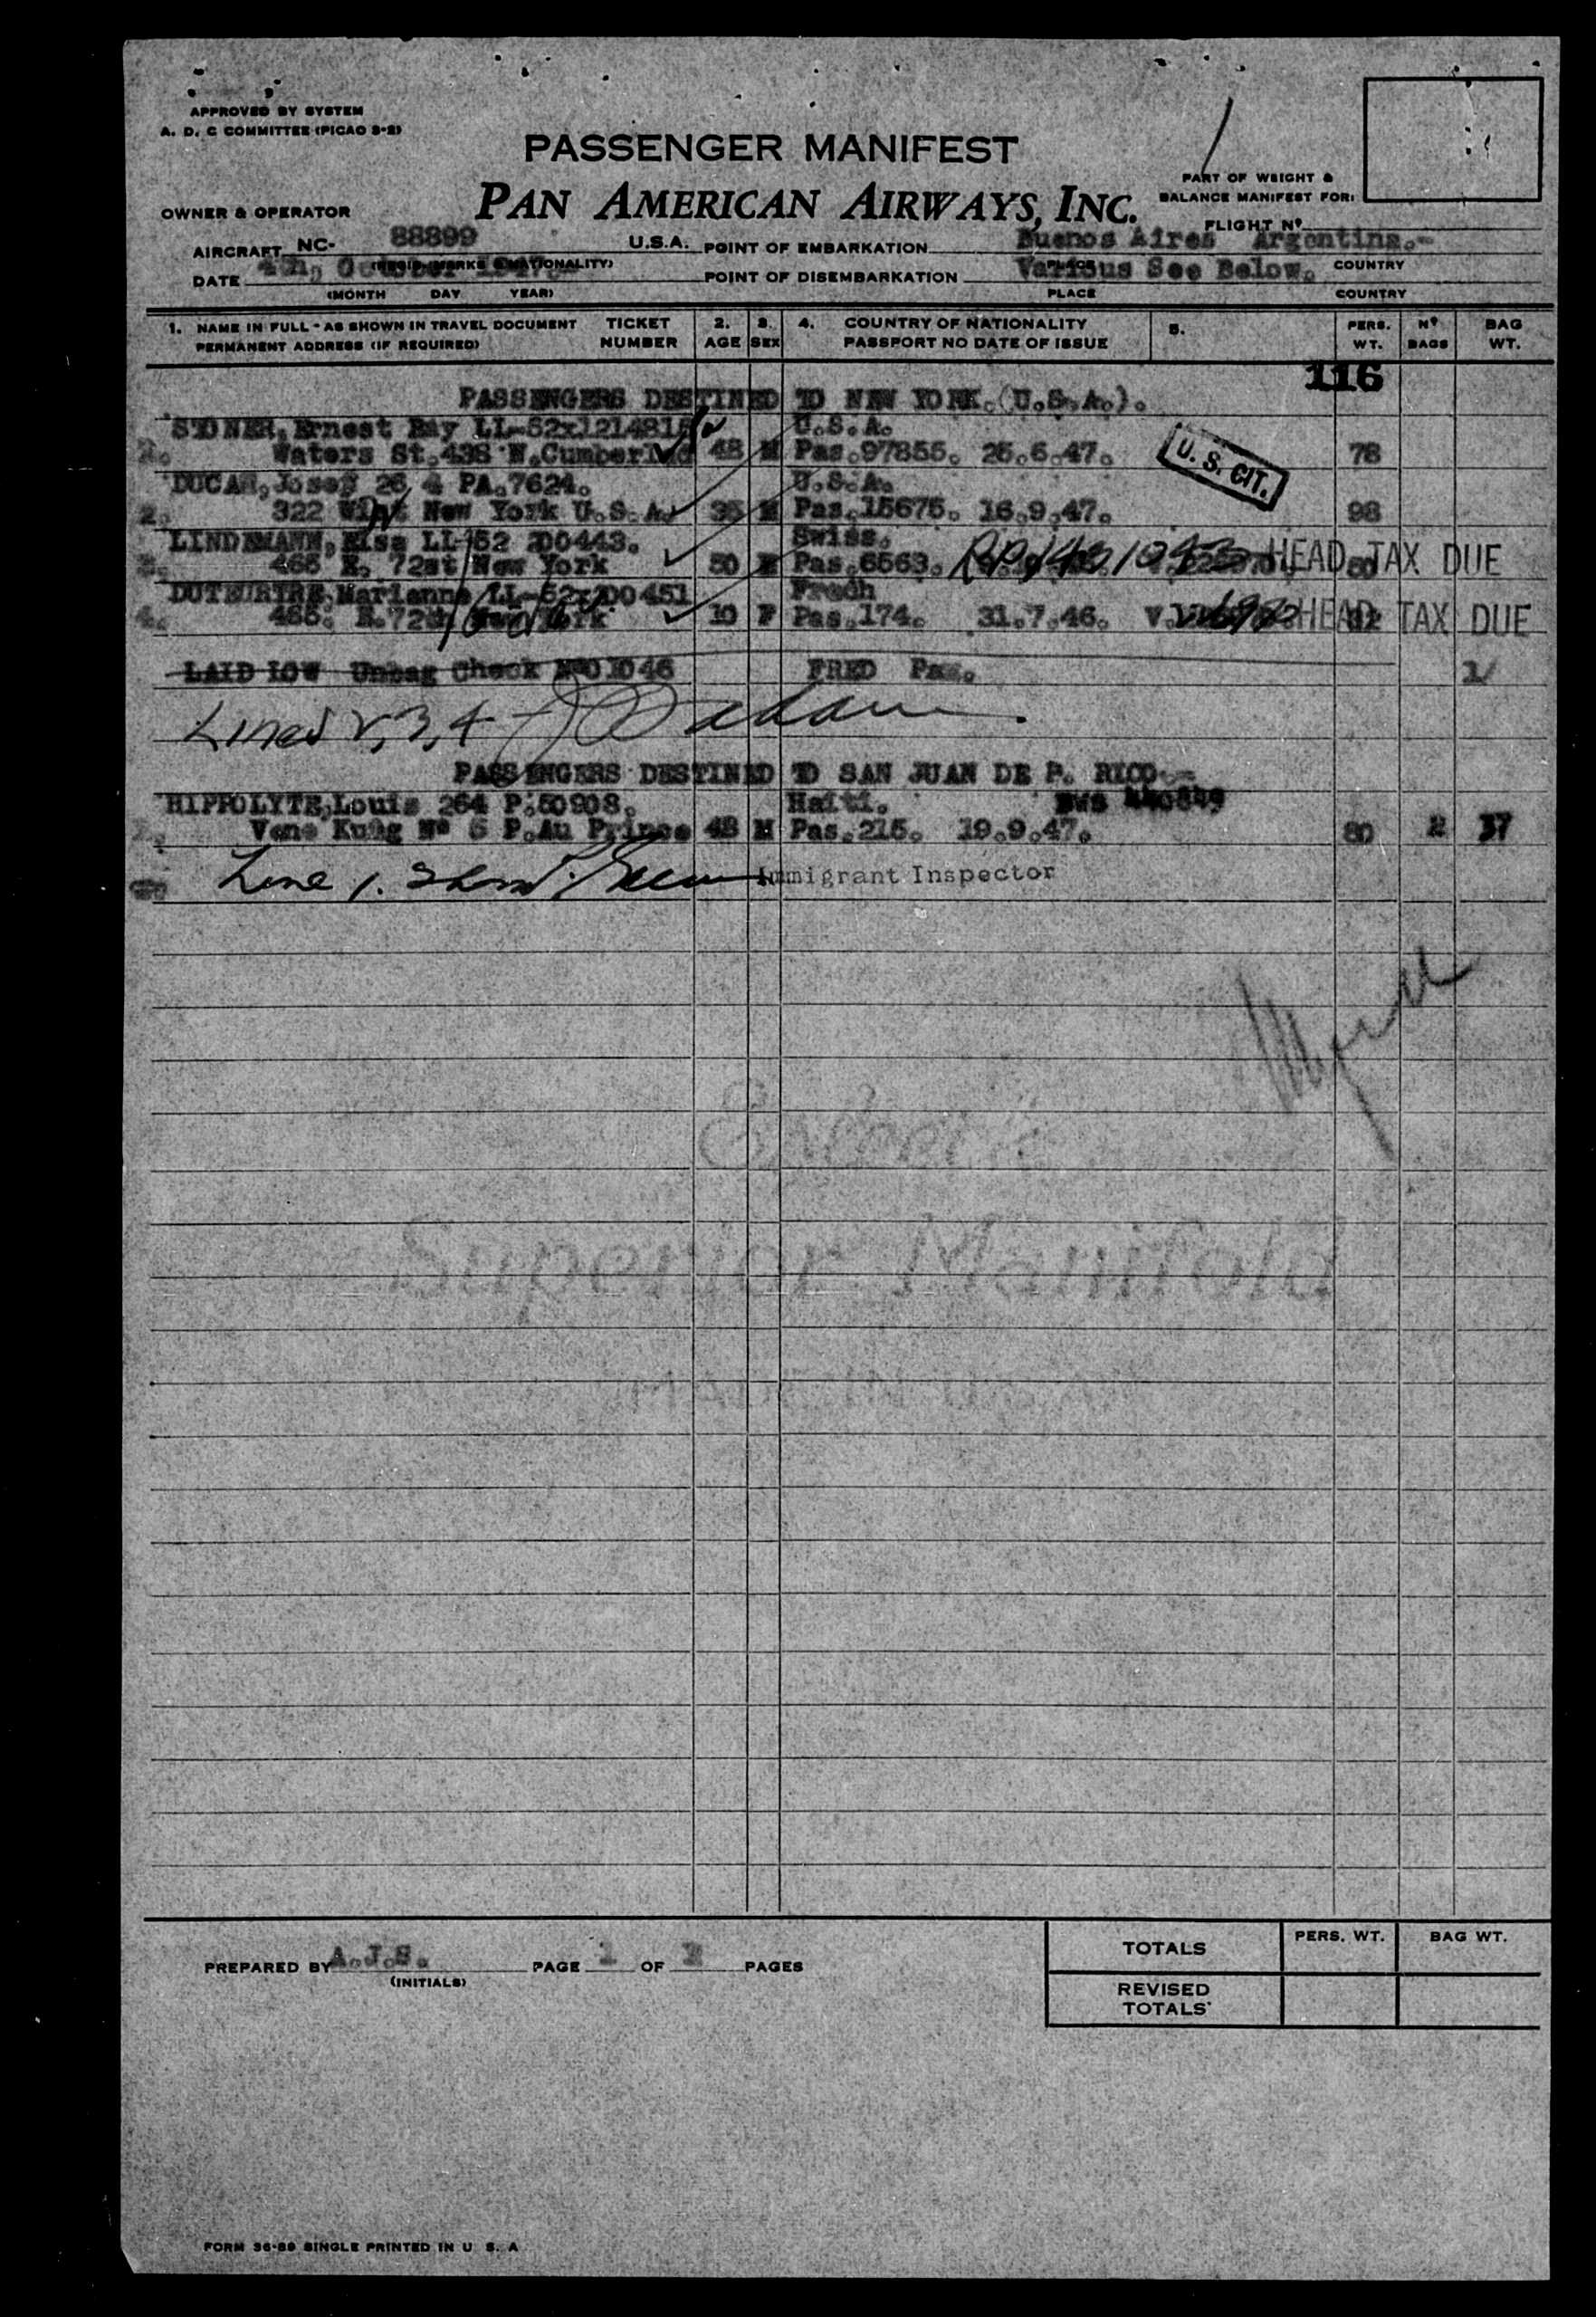 APPROVED BY SYSTEM
A. D. C COMMITTEE (PICAO 3-2)
PASSENGER MANIFEST
PAN AMERICAN AIRWAYS, INC.
PART OF WEIGHT &
BALANCE MANIFEST FOR:
FLIGHT Nº
OWNER & OPERATOR
AIRCRAFT NC- 88899 U.S.A. POINT OF EMBARKATION Buenos Aires Argentina.-
DATE 4th, October POINT OF DISEMBARKATION Various See Below. COUNTRY
(MONTH DAY YEAR) PLACE COUNTRY
1. NAME IN FULL - AS SHOWN IN TRAVEL DOCUMENT TICKET 2. 3. 4. COUNTRY OF NATIONALITY 5. PERS. Nº BAG
PERMANENT ADDRESS (IF REQUIRED) NUMBER AGE SEX PASSPORT NO DATE OF ISSUE WT. BAGS WT.
116
PASSENGERS DESTINED TO NEW YORK.(U.S.A.).
STONER, Ernest Ray LL-52x121481 U.S.A.
Waters St.438 N.Cumberl 48 M Pas.97855. 25.6.47. U. S. CIT. 78
DUCAR, Josef 26 4 PA.7624. U.S.A.
2. 322 New York U.S.A. 35 M Pas.15675. 16.9.47. 98
LINDEMANN, Elsa LL-52 200443. Swiss.
3. 465 E. 72st New York 50 Pas.6563. HEAD TAX DUE
DUTEURTRE, Marianne LL-52x200451 Frech
4. 465. E.72 10 F Pas.174. 31.7.46. V. HEAD TAX DUE
LAID LOW Unbag Check Nº01046 FRED Pas.
Lines 2, 3, 4 -
PASSENGERS DESTINED TO SAN JUAN DE P. RICO.-
HIPPOLYTE, Louis 264 P.50908. Haiti.
Vene Kung Nº 5 P.Au Prince 48 M Pas.215. 19.9.47. 80 2 37
Line 1. Immigrant Inspector
Superior Manifold
PREPARED BY A.J.S. PAGE 1 OF PAGES
(INITIALS)
TOTALS PERS. WT. BAG WT.
REVISED
TOTALS
FORM 36-89 SINGLE PRINTED IN U. S. A